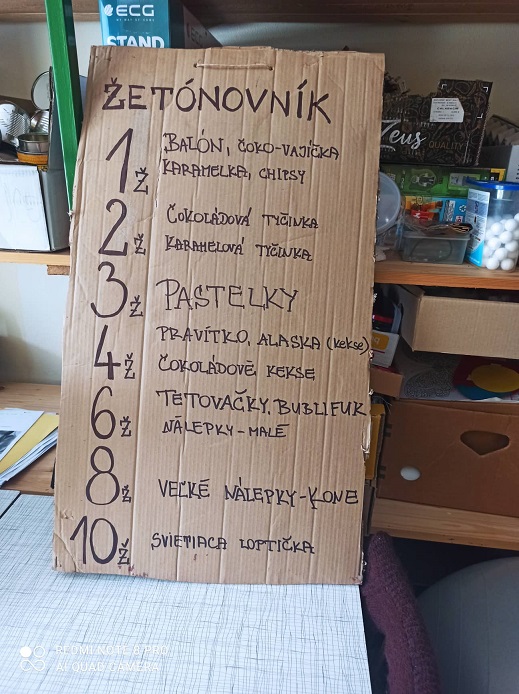 ECG
STAND
ŽETÓNOVNÍK
1 Ž BALÓN, ČOKO-VAJÍČKA
KARAMELKA, CHIPSY
2 Ž ČOKOLÁDOVÁ TYČINKA
KARAMELOVÁ TYČINKA
3 Ž PASTELKY
4 Ž PRAVÍTKO, ALASKA (kekse)
ČOKOLÁDOVÉ KEKSE
6 Ž TETOVAČKY, BUBLIFUK
NÁLEPKY-MALÉ
8 Ž VEĽKÉ NÁLEPKY-KONE
10 Ž SVIETIACA LOPTIČKA
Zeus
QUALITY
REDMI NOTE 8 PRO
AI QUAD CAMERA